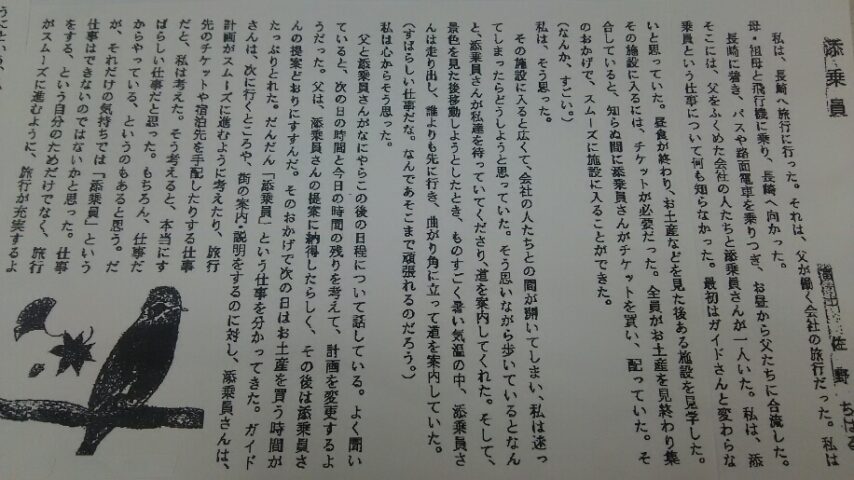 添乗員
佐野ちはる
私は、長崎へ旅行に行った。それは、父が働く会社の旅行だった。私は
母・祖母と飛行機に乗り、長崎へ向かった。
長崎に着き、バスや路面電車を乗りつぎ、お昼から父たちに合流した。
そこには、父をふくめた会社の人たちと添乗員さんが一人いた。私は、添
乗員という仕事について何も知らなかった。最初はガイドさんと変わらな
いと思っていた。昼食が終わり、お土産などを見た後ある施設を見学した。
その施設に入るには、チケットが必要だった。全員がお土産を見終わり集
合していると、知らぬ間に添乗員さんがチケットを買い、配っていた。そ
のおかげで、スムーズに施設に入ることができた。
(なんか、すごい。)
私は、そう思った。
その施設に入ると広くて、会社の人たちとの間が開いてしまい、私は迷っ
てしまったらどうしようと思っていた。そう思いながら歩いているとなん
と、添乗員さんが私達を待っていてくださり、道を案内してくれた。そして、
景色を見た後移動しようとしたとき、ものすごく暑い気温の中、添乗員さ
んは走り出し、誰よりも先に行き、曲がり角に立って道を案内していた。
(すばらしい仕事だな。なんであそこまで頑張れるのだろう。)
私は心からそう思った。
父と添乗員さんがなにやらこの後の日程について話している。よく聞い
ていると、次の日の時間と今日の時間の残りを考えて、計画を変更するよ
うだった。父は、添乗員さんの提案に納得したらしく、その後は添乗員さ
んの提案どおりにすすんだ。そのおかげで次の日はお土産を買う時間が
たっぷりとれた。だんだん「添乗員」という仕事を分かってきた。ガイド
さんは、次に行くところや、街の案内・説明をするのに対し、添乗員さんは、
計画がスムーズに進むように考えたり、旅行
先のチケットや宿泊先を手配したりする仕事
だと、私は考えた。そう考えると、本当にす
ばらしい仕事だと思った。もちろん、仕事だ
からやっている、というのもあると思う。だ
が、それだけの気持ちでは「添乗員」という
仕事はできないのではないかと思った。仕事
をする、という自分のためだけでなく、旅行
がスムーズに進むように、旅行が充実するよ
うにという、